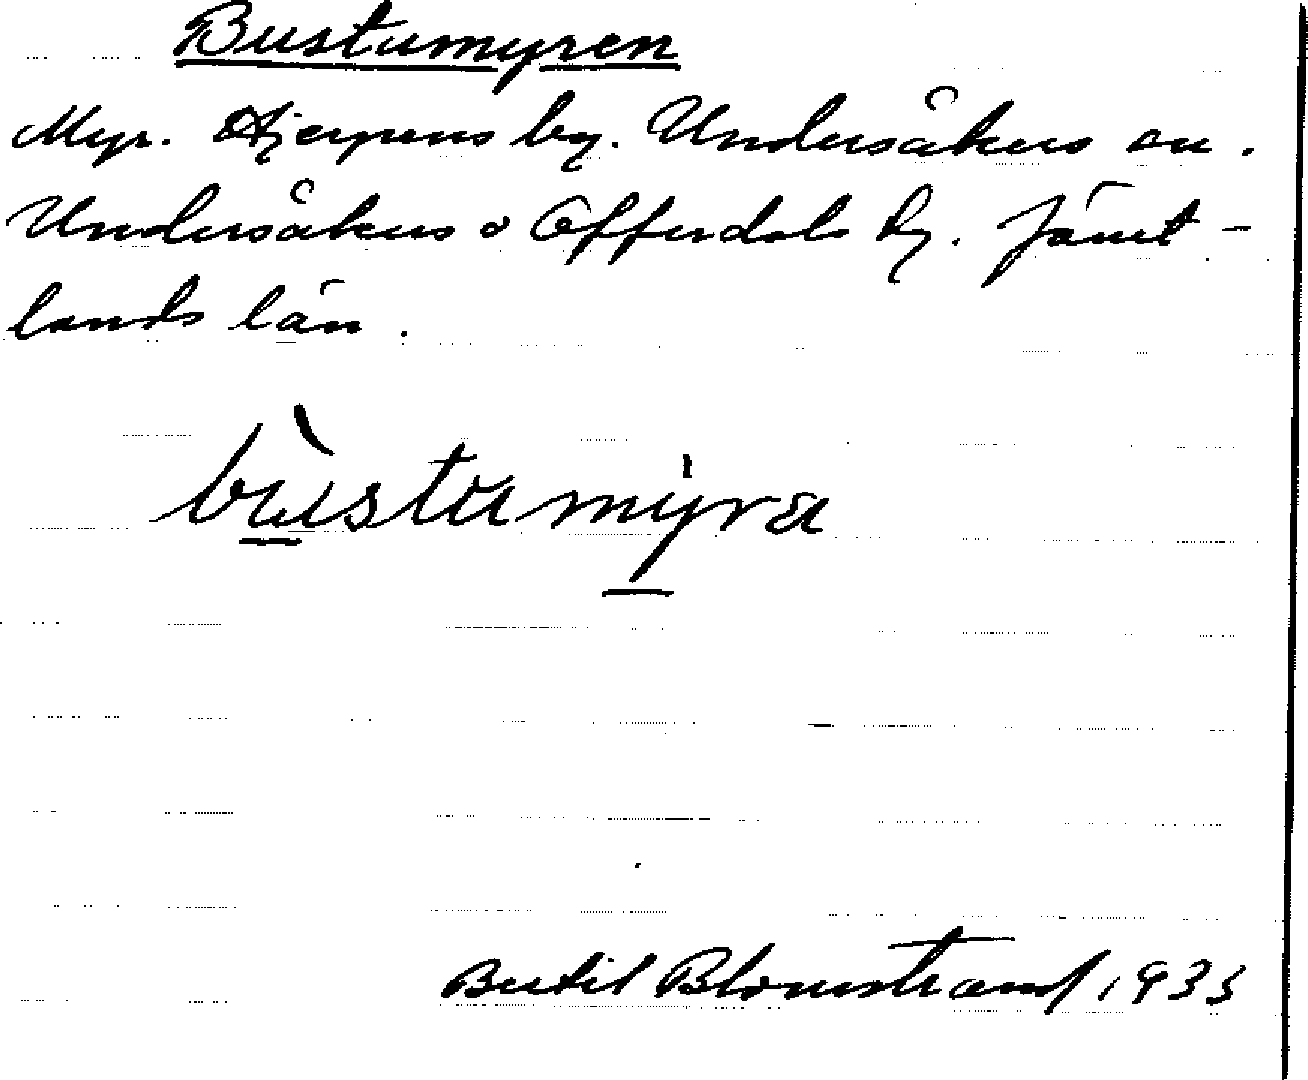 Bustumyren
Myr. Hjerpens by. Undersåkers sn.
Undersåkers o Offerdals tg. Jämt-
lands län.
bùstumyra
Bertil Blomstrand 1933